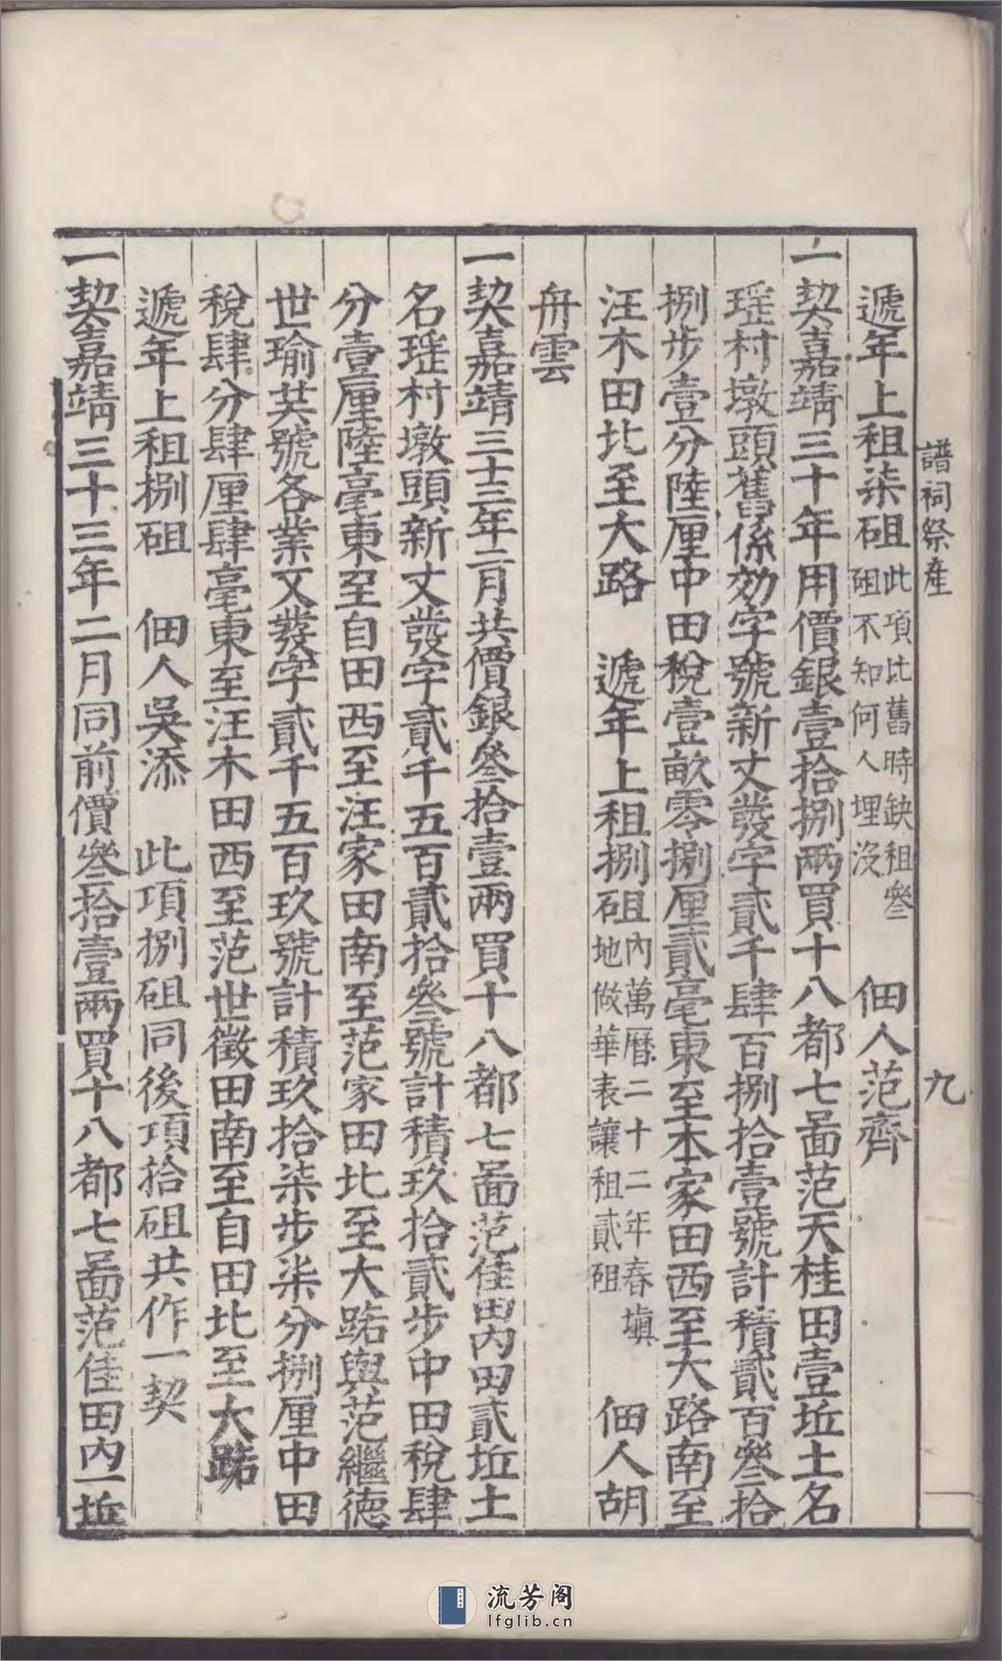 譜祠祭產
九
遞年上租柒砠此項比舊時缺租叄砠不知何人埋沒 佃人范齊
一契嘉靖三十年用價銀壹拾捌兩買十八都七啚范天桂田壹坵土名
瑶村墩頭舊係効字號新丈發字貳千肆百捌拾壹號計積貳百叄拾
捌步壹分陸厘中田稅壹畝零捌厘貳毫東至本家田西至大路南至
汪木田北至大路 遞年上租捌砠內萬曆二十二年春塡地做華表讓租貳砠 佃人胡
舟雲
一契嘉靖三十三年二月共價銀叄拾壹兩買十八都七啚范佳田內田貳坵土
名瑶村墩頭新丈發字貳千五百貳拾叄號計積玖拾貳步中田稅肆
分壹厘陸毫東至自田西至汪家田南至范家田北至大路與范繼德
世瑜共號各業又發字貳千五百玖號計積玖拾柒步柒分捌厘中田
稅肆分肆厘肆毫東至汪木田西至范世徵田南至自田北至大路
遞年上租捌砠 佃人吳添 此項捌砠同後項拾砠共作一契
一契嘉靖三十三年二月同前價叄拾壹兩買十八都七啚范佳田內一坵
流芳阁
lfglib.cn